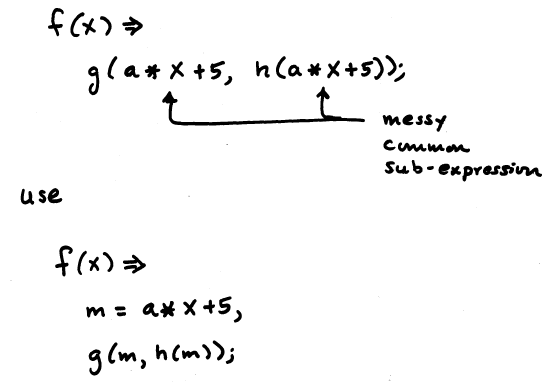 f(x) ⇒
g(a*x+5, h(a*x+5));
messy
common
sub-expression
use
f(x) ⇒
m = a*x+5,
g(m, h(m));